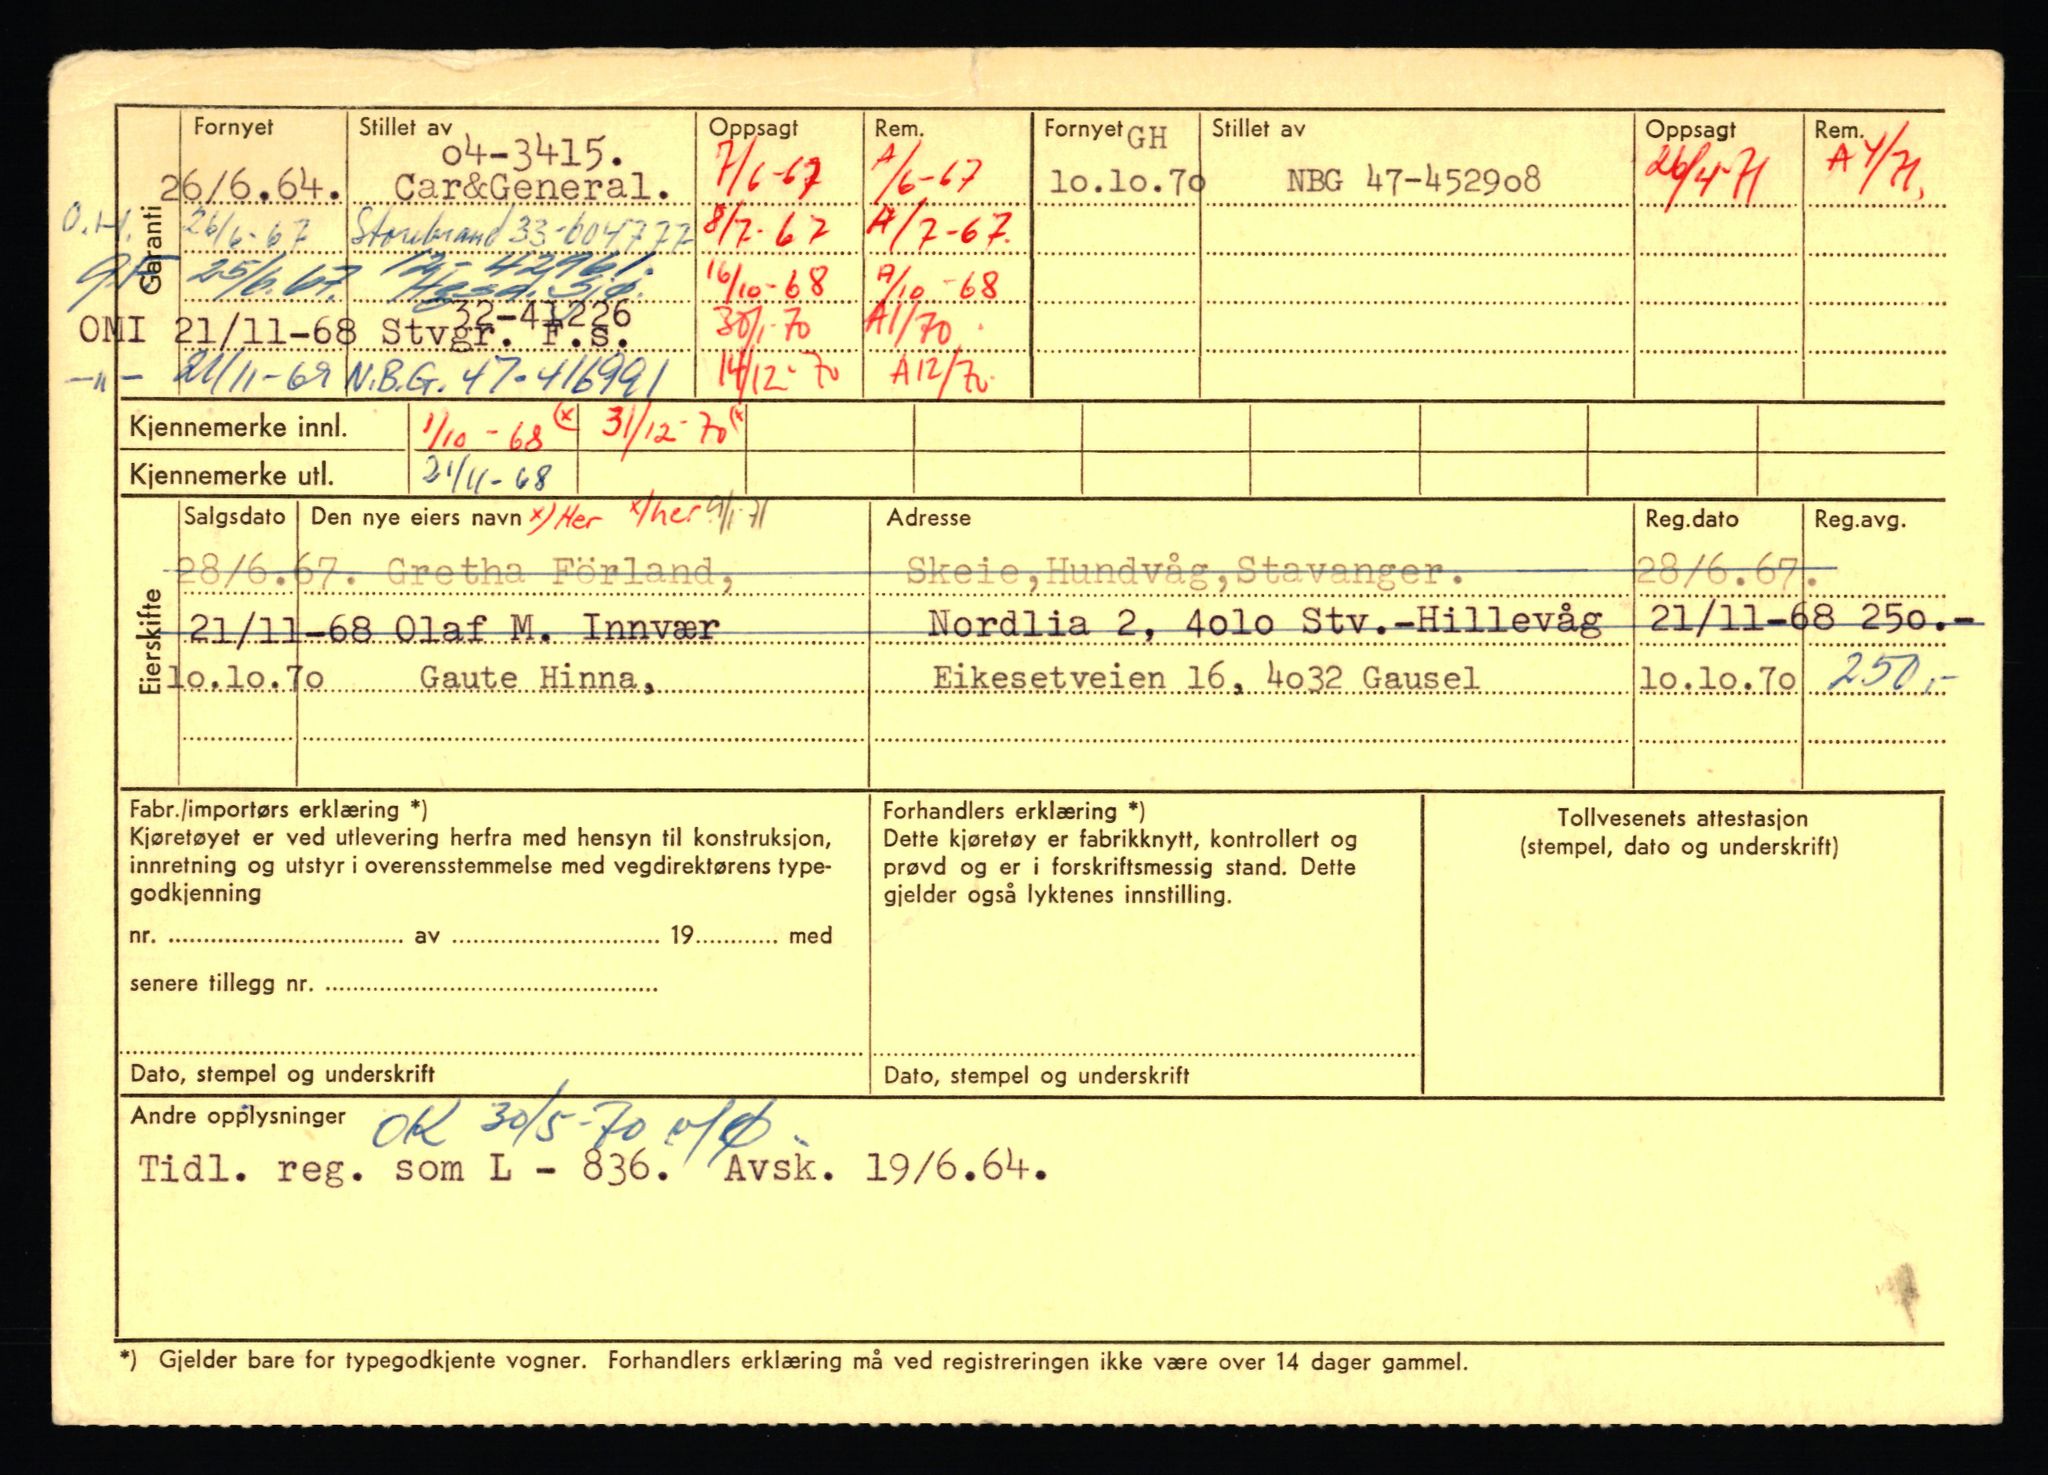 Garanti
Fornyet Stillet av Oppsagt Rem. Fornyet GH Stillet av Oppsagt Rem.
26/6.64. o4-3415. Car&General. 7/6-67 A/6-67 lo.lo.7o NBG 47-4529o8 26/4-71 A 4/71.
O.H. 26/6-67 Storebrand 33-604777 8/7-67 A/7-67.
25/6.67. 16/10-68 A/10-68
OMI 21/11-68 32-41226 Stvgr. F.s. 30/1-70 A1/70.
-"- 21/11-69 N.B.G. 47-416991 14/12-70 A12/70.
Kjennemerke innl. 1/10-68 (x 31/12-70 (x
Kjennemerke utl. 21/11-68
Eierskifte
Salgsdato Den nye eiers navn x) Her x) her 9/1-71 Adresse Reg.dato Reg.avg.
28/6.67. Gretha Förland, Skeie,Hundvåg,Stavanger. 28/6.67.
21/11-68 Olaf M. Innvær Nordlia 2, 4olo Stv.-Hillevåg 21/11-68 25o.-
lo.lo.7o Gaute Hinna, Eikesetveien 16, 4o32 Gausel lo.lo.7o 250,-
Fabr./importørs erklæring *)
Kjøretøyet er ved utlevering herfra med hensyn til konstruksjon,
innretning og utstyr i overensstemmelse med vegdirektørens type-
godkjenning
nr. .......... av .......... 19.......... med
senere tillegg nr. ..........
Dato, stempel og underskrift
Forhandlers erklæring *)
Dette kjøretøy er fabrikknytt, kontrollert og
prøvd og er i forskriftsmessig stand. Dette
gjelder også lyktenes innstilling.
Dato, stempel og underskrift
Tollvesenets attestasjon
(stempel, dato og underskrift)
Andre opplysninger OK 30/5-70
Tidl. reg. som L - 836. Avsk. 19/6.64.
*) Gjelder bare for typegodkjente vogner. Forhandlers erklæring må ved registreringen ikke være over 14 dager gammel.